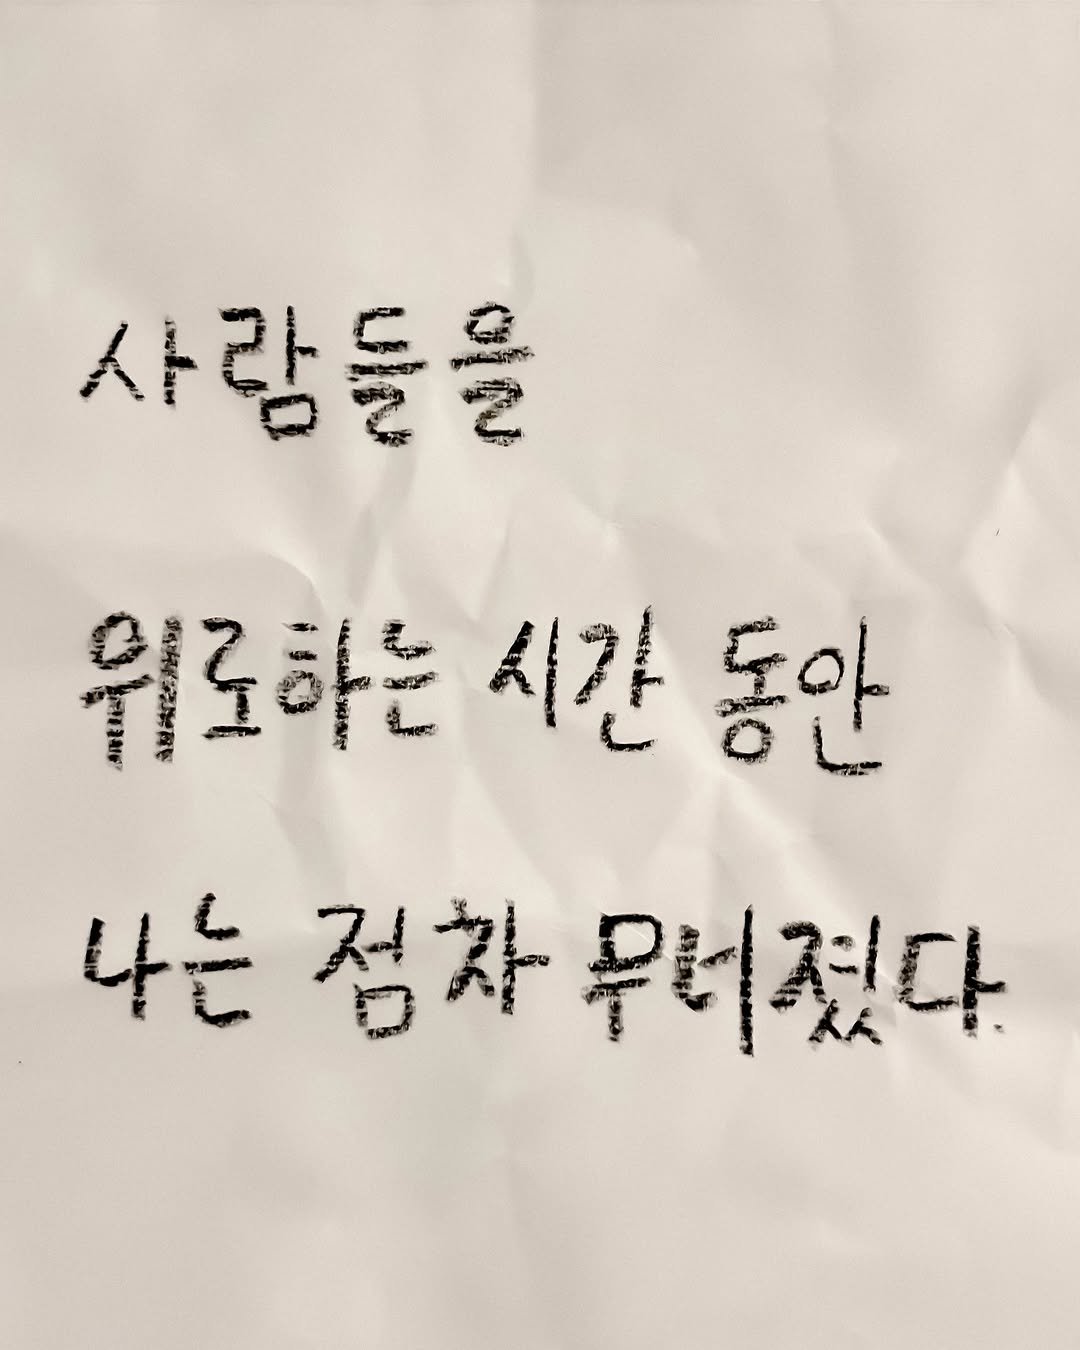 사람들을
위로하는 시간 동안
나는 점차 무너졌다.